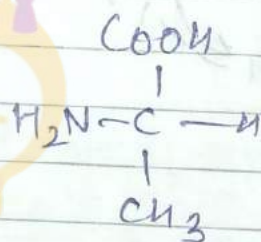 COOH
|
H₂N-C-H
|
CH₃